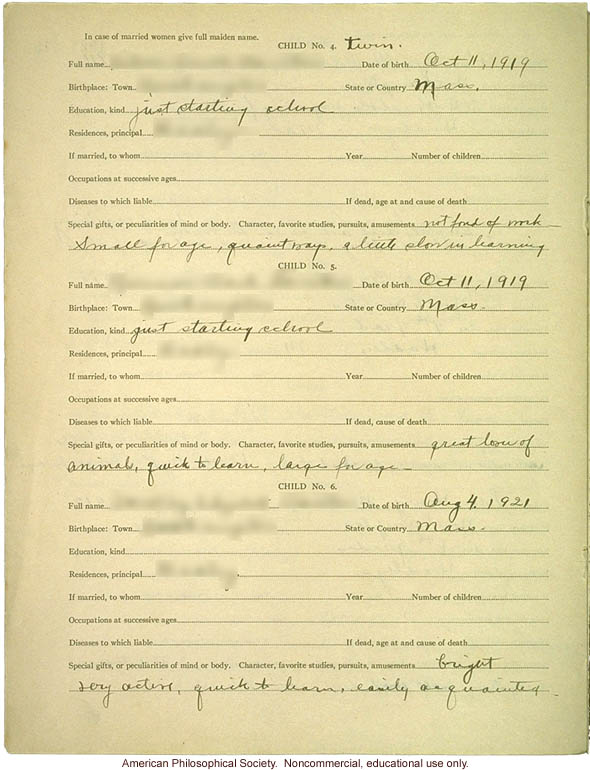 In case of married women give full maiden name.
CHILD No. 4. Twin.
Full name Date of birth Oct 11, 1919
Birthplace: Town State or Country Mass.
Education, kind just starting school
Residences, principal
If married, to whom Year Number of children
Occupations at successive ages
Diseases to which liable If dead, age at and cause of death
Special gifts, or peculiarities of mind or body. Character, favorite studies, pursuits, amusements not fond of work
Small for age, quaint ways, a little slow in learning
CHILD No. 5.
Full name Date of birth Oct 11, 1919
Birthplace: Town State or Country Mass.
Education, kind just starting school
Residences, principal
If married, to whom Year Number of children
Occupations at successive ages
Diseases to which liable If dead, cause of death
Special gifts, or peculiarities of mind or body. Character, favorite studies, pursuits, amusements great lover of
animals, quick to learn, large for age -
CHILD No. 6.
Full name Date of birth Aug 4, 1921
Birthplace: Town State or Country Mass.
Education, kind
Residences, principal
If married, to whom Year Number of children
Occupations at successive ages
Diseases to which liable If dead, age at and cause of death
Special gifts, or peculiarities of mind or body. Character, favorite studies, pursuits, amusements bright
very active, quick to learn, easily acquainted -
American Philosophical Society. Noncommercial, educational use only.